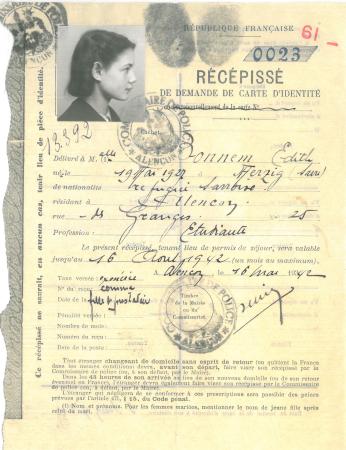 RÉPUBLIQUE FRANÇAISE
61
0023
RÉCÉPISSÉ
DE DEMANDE DE CARTE D'IDENTITÉ
en renouvellement de la carte N°
13.392
Cachet
COMMISSAIRE DE POLICE
ALENÇON
Délivré à M elle Connem Edith
né le 19 Mai 1922 à Merzig (Sarre)
de nationalité réfugiée Sarroise
résidant à Alençon
rue des Granges 28
Profession Etudiante
Le présent récépissé, tenant lieu de permis de séjour, sera valable
jusqu'au 16 Août 1942 (un mois au maximum).
A Alençon 16 mai 1942
Taxe versée: exonérée
N° du reçu: comme
Date de la
Timbre
de la Mairie
ou du
Commissariat.
Pénalité versée
Nombre de mois
Numéro du reçu
Date de la poste
Tout étranger changeant de domicile sans esprit de retour (ou quittant la France
dans les mêmes conditions) devra, avant son départ, faire viser son récépissé par le
Commissaire de police (ou, à défaut, par le Maire).
Dans les 48 heures de son arrivée au lieu de son nouveau domicile (ou de son retour
éventuel en France), l'étranger devra également faire viser son récépissé par le Commissaire
de police (ou, à défaut, par le Maire).
L'étranger qui négligera de se conformer à ces prescriptions sera passible des peines
prévues par l'article 471, § 15, du Code pénal.
(1) Nom et prénoms. Pour les femmes mariées, mentionner le nom de jeune fille après
celui du mari.
Ce récépissé ne saurait, en aucun cas, tenir lieu de pièce d'identité.